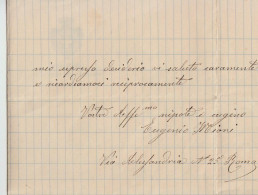 mio espresso desiderio vi saluto caramente
e ricordiamoci reciprocamente
Vostro Aff.mo nipote e cugino
Eugenio Mioni
Via Alessandria N° 25 Roma